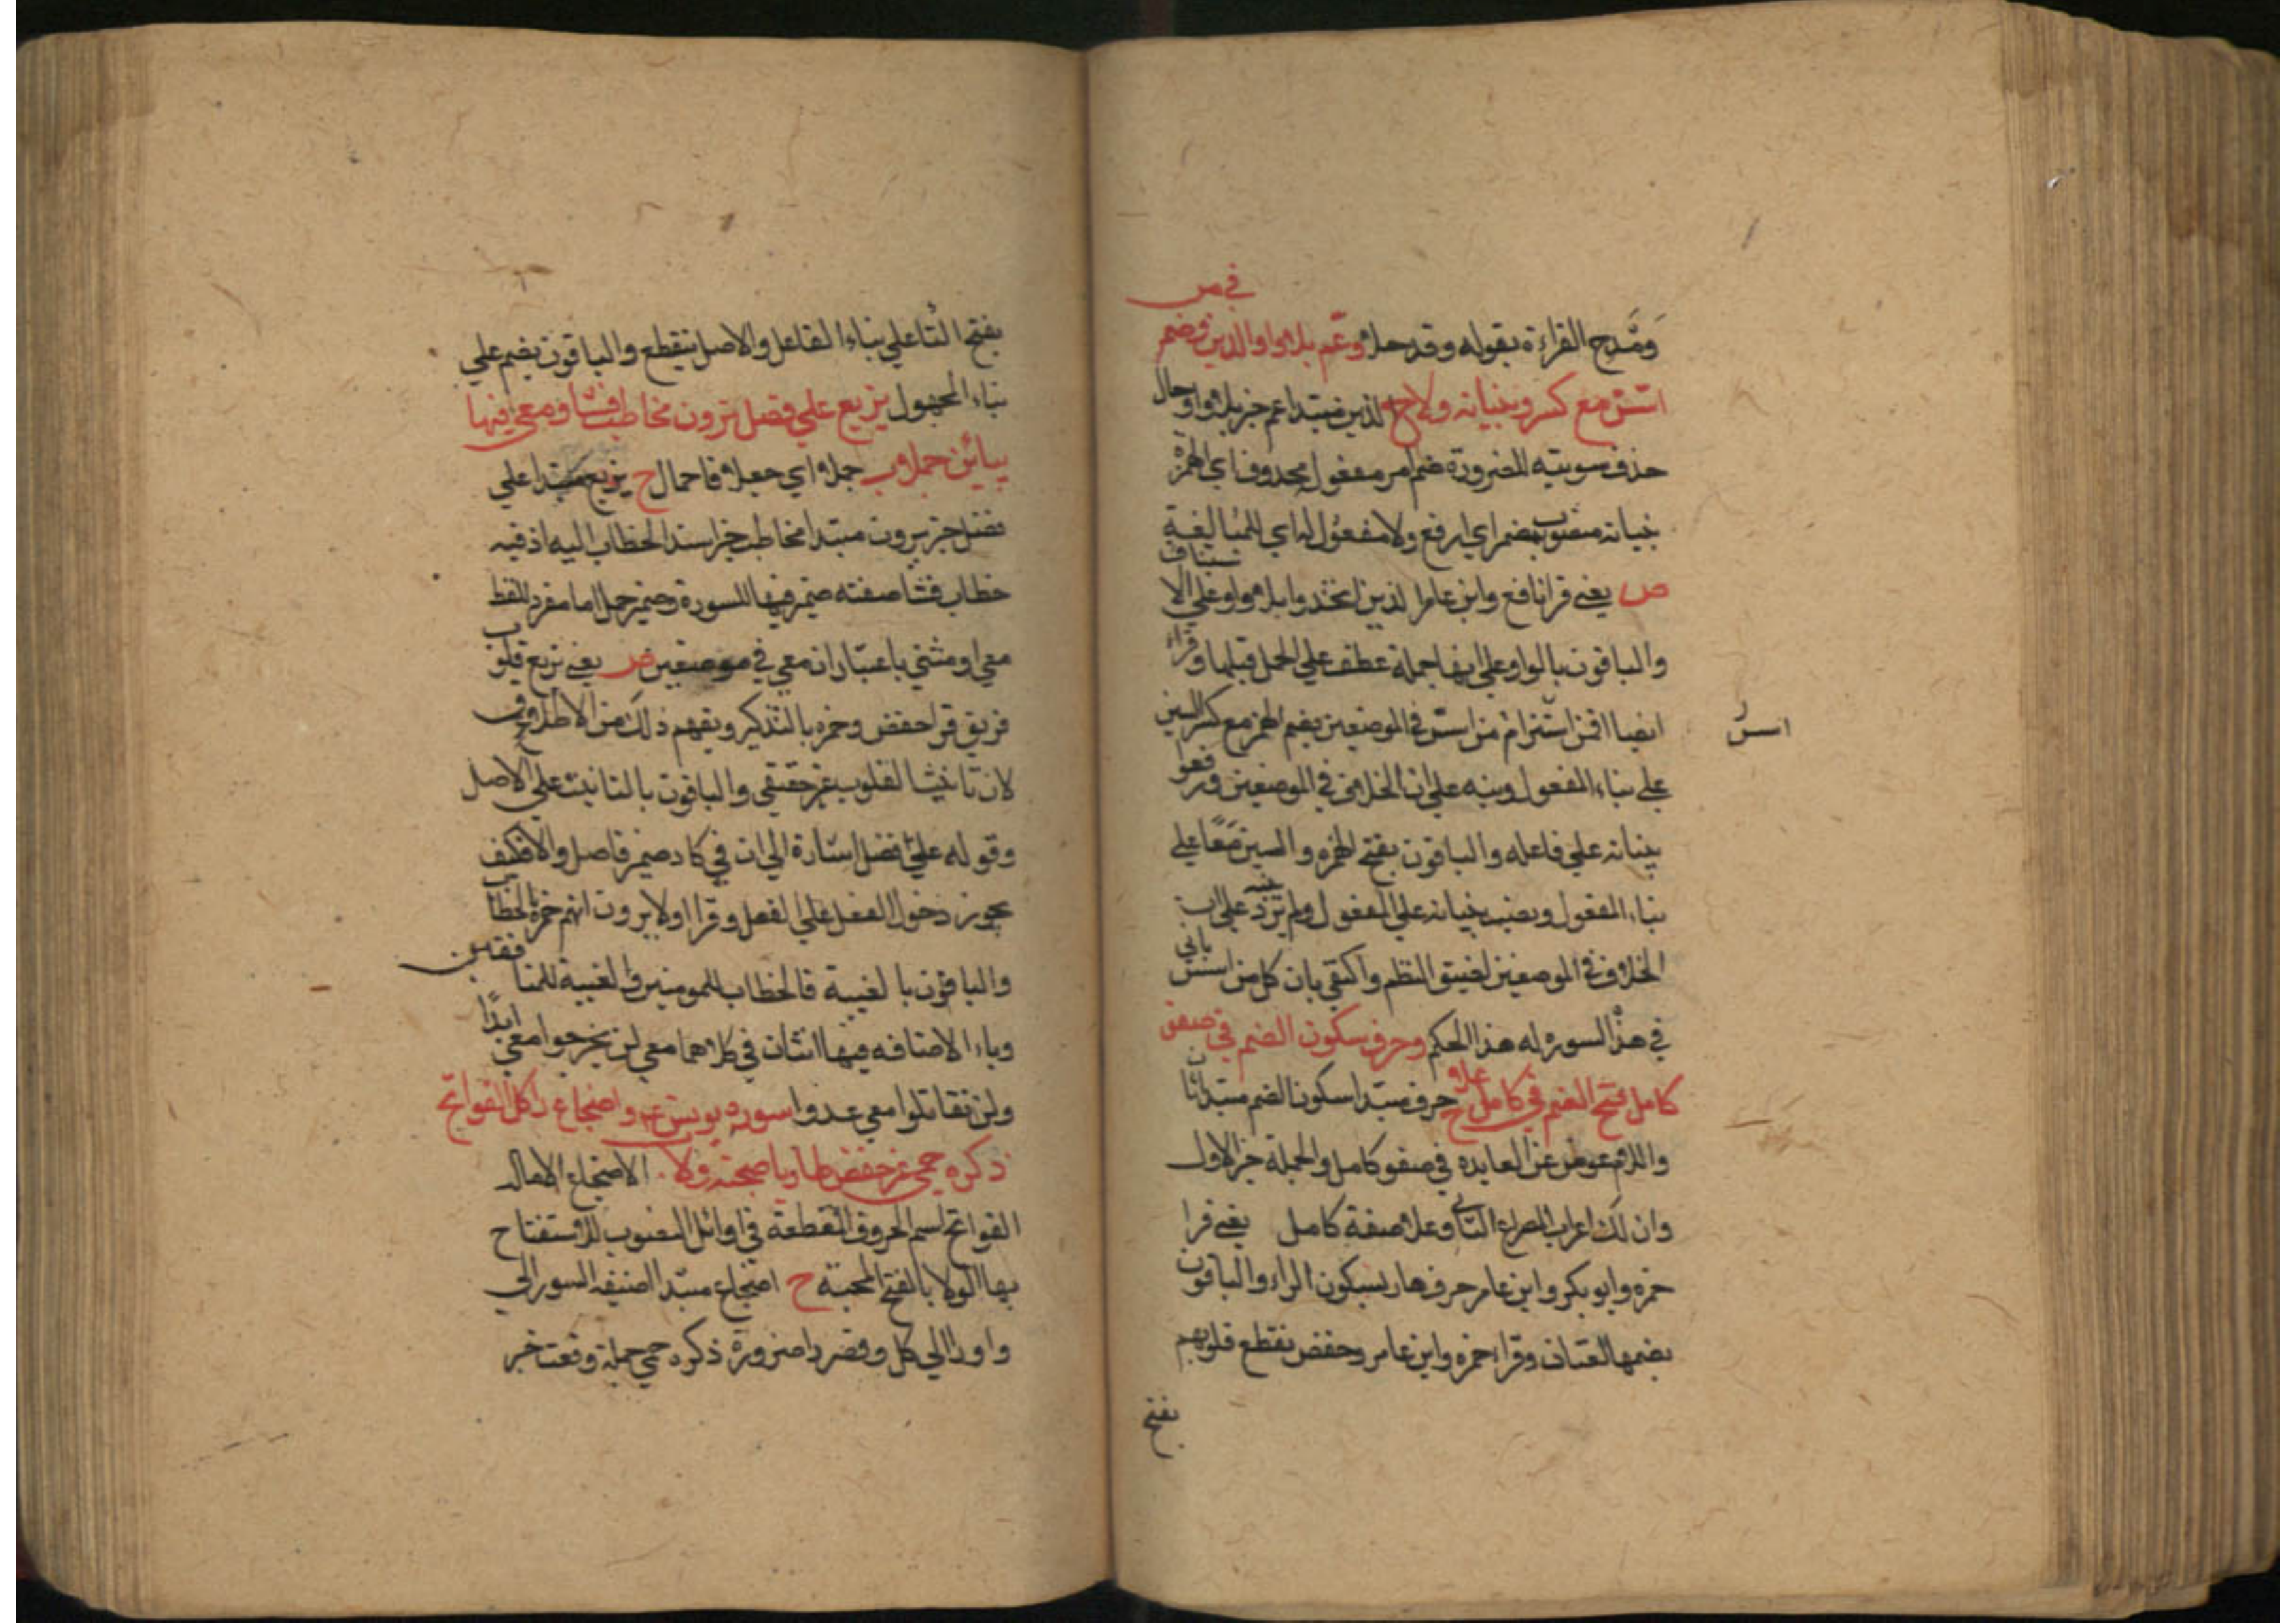 في من
ومدح القراءة بقوله وقد حلا وعم بلا واو الذين وضم
اسّس مع كسر وبنيانه ولا ح الذين مبتدا عم خبر بلا واو حال
حذف تنوينه للضرورة ضم امر مفعول محذوف اي الهمزة
بنيانه منصوب بضم اي ارفع ولا مفعول له اي للمتابعة
ص يعني قرا نافع وابن عامر الذين اتخذوا بلا واو علي الاستيناف
والباقون بالواو علي انها جملة عطف علي الجمل قبلها وقراء
ايضا افمن اسّس ام من اسّس في الموضعين بضم الهمز مع كسر السين
اسس
علي بناء المفعول ونبه علي ان الخلاف في الموضعين ورفعوا
بنيانه علي فاعله والباقون بفتح الهمزة والسين معًا علي
بناء المفعول ونصب بنيانه علي المفعول ولم ينبه علي ان
الخلاف في الموضعين لضيق النظم واكتفي بان كل من اسس ياتي
في هذه السوره له هذا الحكم وحرف سكون الضم في صفو
كامل فتح الضم في كامل علا ح حرف مبتدا سكون الضم مبتدا ثان
واللام عوض عن العايد في صفو كامل والجملة خبر الاول
وان لك اعراب المصراع الثاني وعلا صفة كامل يعني قرا
حمزه وابو بكر وابن عامر جرف هار بسكون الراء والباقون
بضمها لغتان وقرا حمزه وابن عامر وحفص تقطع قلوبهم
بفتح
بفتح التا علي بناء الفاعل والاصل تتقطع والباقون بضم علي
بناء المجهول يزيع علي فصل ترون مخاطب فشا ومعي فيها
بيائين جملا ب جملا اي جعلا فاحمال ح يزيع مبتدا علي
فصل خبر يرون مبتدا مخاطب خبر اسند الخطاب اليه اذ فيه
خطاب فشا صفته ضمير فيها للسورة وضمير جملا اما مفرد للفظ
معي او مثني باعتبار ان معي في موضعين ص يعني يزيع قلوب
فريق قرا حفص وحمزه بالتذكير ويفهم ذلك من الاطلاق
لان تانيث القلوب غير حقيقي والباقون بالتانيث علي الاصل
وقوله علي فصل اشارة الي ان في كاد ضمير فاصل والا فكيف
يجوز دخول الفعل علي الفعل وقرا اولا يرون انهم حمزه بالخطاب
والباقون بالغيبة فالخطاب للمومنين والغيبة للمنافقين
وياء الاضافه فيها اثنتان في كلاهما معي لن تخرجوا معي ابدًا
ولن تقاتلوا معي عدوا سورة يونس عم واضجاع را كل الفواتح
ذكره حمي غير حفص طا ويا صحبة ولا الاضجاع الاماله
الفواتح اسم الحروف المقطعة في اوائل السور للاستفتاح
بها الولا بالفتح المحبة ح اضجاع مبتدا اضيف الي
وا ورا الي كل وقصر را ضرورة ذكره حمي جملة وقعت خبر